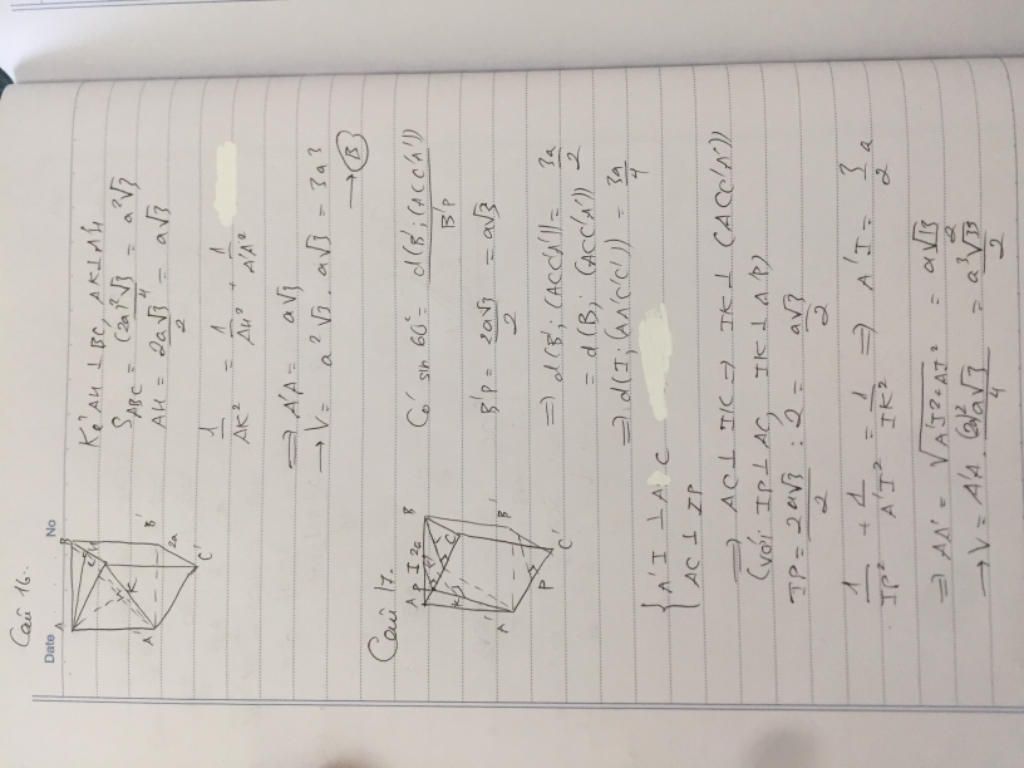 Date No
Câu 16.
A B C A' B' C' H K 2a
Kẻ AH ⊥ BC, AK ⊥ A'H
S_ABC = (2a)²√3 / 4 = a²√3
AH = 2a√3 / 2 = a√3
1/AK² = 1/AH² + 1/A'A²
=> A'A = a√3
→ V = a²√3 . a√3 = 3a³
→ B
Câu 17.
A P I 2a B C K A' B' P C'
Có sin 60° = d(B'; (ACC'A')) / B'P
B'P = 2a√3 / 2 = a√3
=> d(B'; (ACC'A')) = 3a/2
= d(B; (ACC'A'))
=> d(I; (AA'C'C)) = 3a/4
{ A'I ⊥ AC
AC ⊥ IP
=> AC ⊥ IK => IK ⊥ (ACC'A')
(với IP ⊥ AC, IK ⊥ A'P)
IP = 2a√3 / 2 : 2 = a√3 / 2
1/IP² + 1/A'I² = 1/IK² => A'I = 3/2 a
=> AA' = √(A'I² - AI²) = a√3 / 2
→ V = A'A . (2a)²√3 / 4 = a³√3 / 2